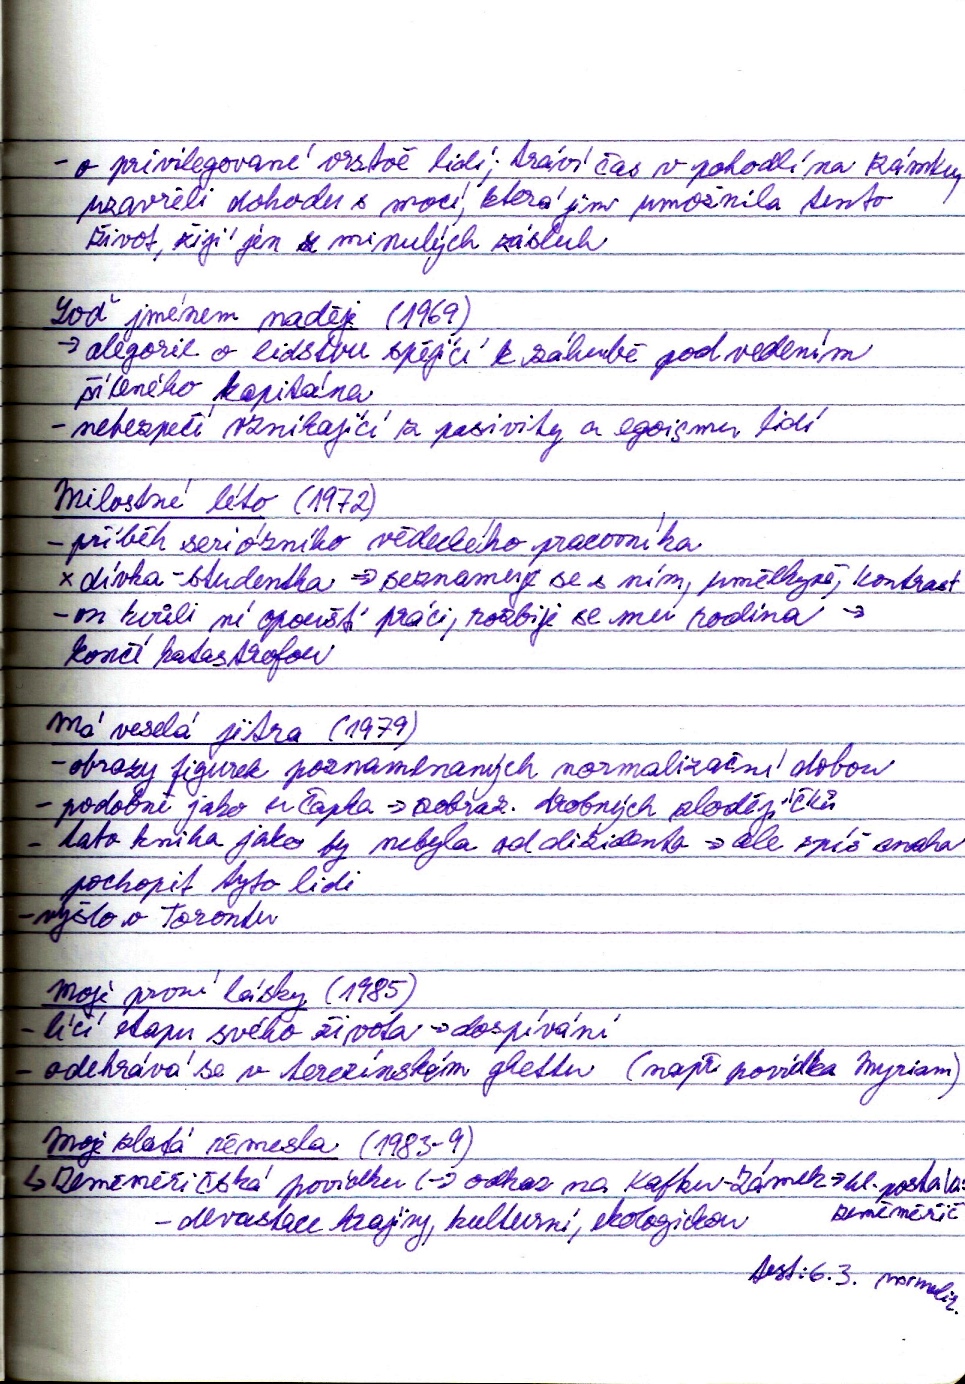 - o privilegované vrstvě lidí; tráví čas v pohodlí na zámku,
uzavřeli dohodu s mocí, která jim umožnila tento
život, žijí jen z minulých zásluh
Loď jménem naděje (1969)
→ alegorie o lidstvu spějící k záhubě pod vedením
šíleného kapitána
- nebezpečí vznikající z pasivity a egoismu lidí
Milostné léto (1972)
- příběh seriózního vědeckého pracovníka
x dívka - studentka → seznamuje se s ním, umělkyně, kontrast
- on kvůli ní opouští práci, rozbije se mu rodina →
končí katastrofou
Má veselá jitra (1979)
- obrazy figurek poznamenaných normalizační dobou
- podobně jako u Čapka → zobraz. drobných zlodějíčků
- tato kniha jako by nebyla od disidenta → ale spíš snaha
pochopit tyto lidi
- vyšlo v Torontu
Moje první lásky (1985)
- líčí etapu svého života → dospívání
- odehrává se v terezínském ghettu (např. povídka Myriam)
Moje zlatá řemesla (1983-9)
↳ Zeměměřičská povídku (→ odkaz na Kafku - Zámek → hl. postava:
zeměměřič
- devastace krajiny, kulturní, ekologickou
test: 6. 3. normaliz.